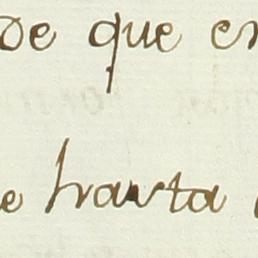 De que en
e hasta